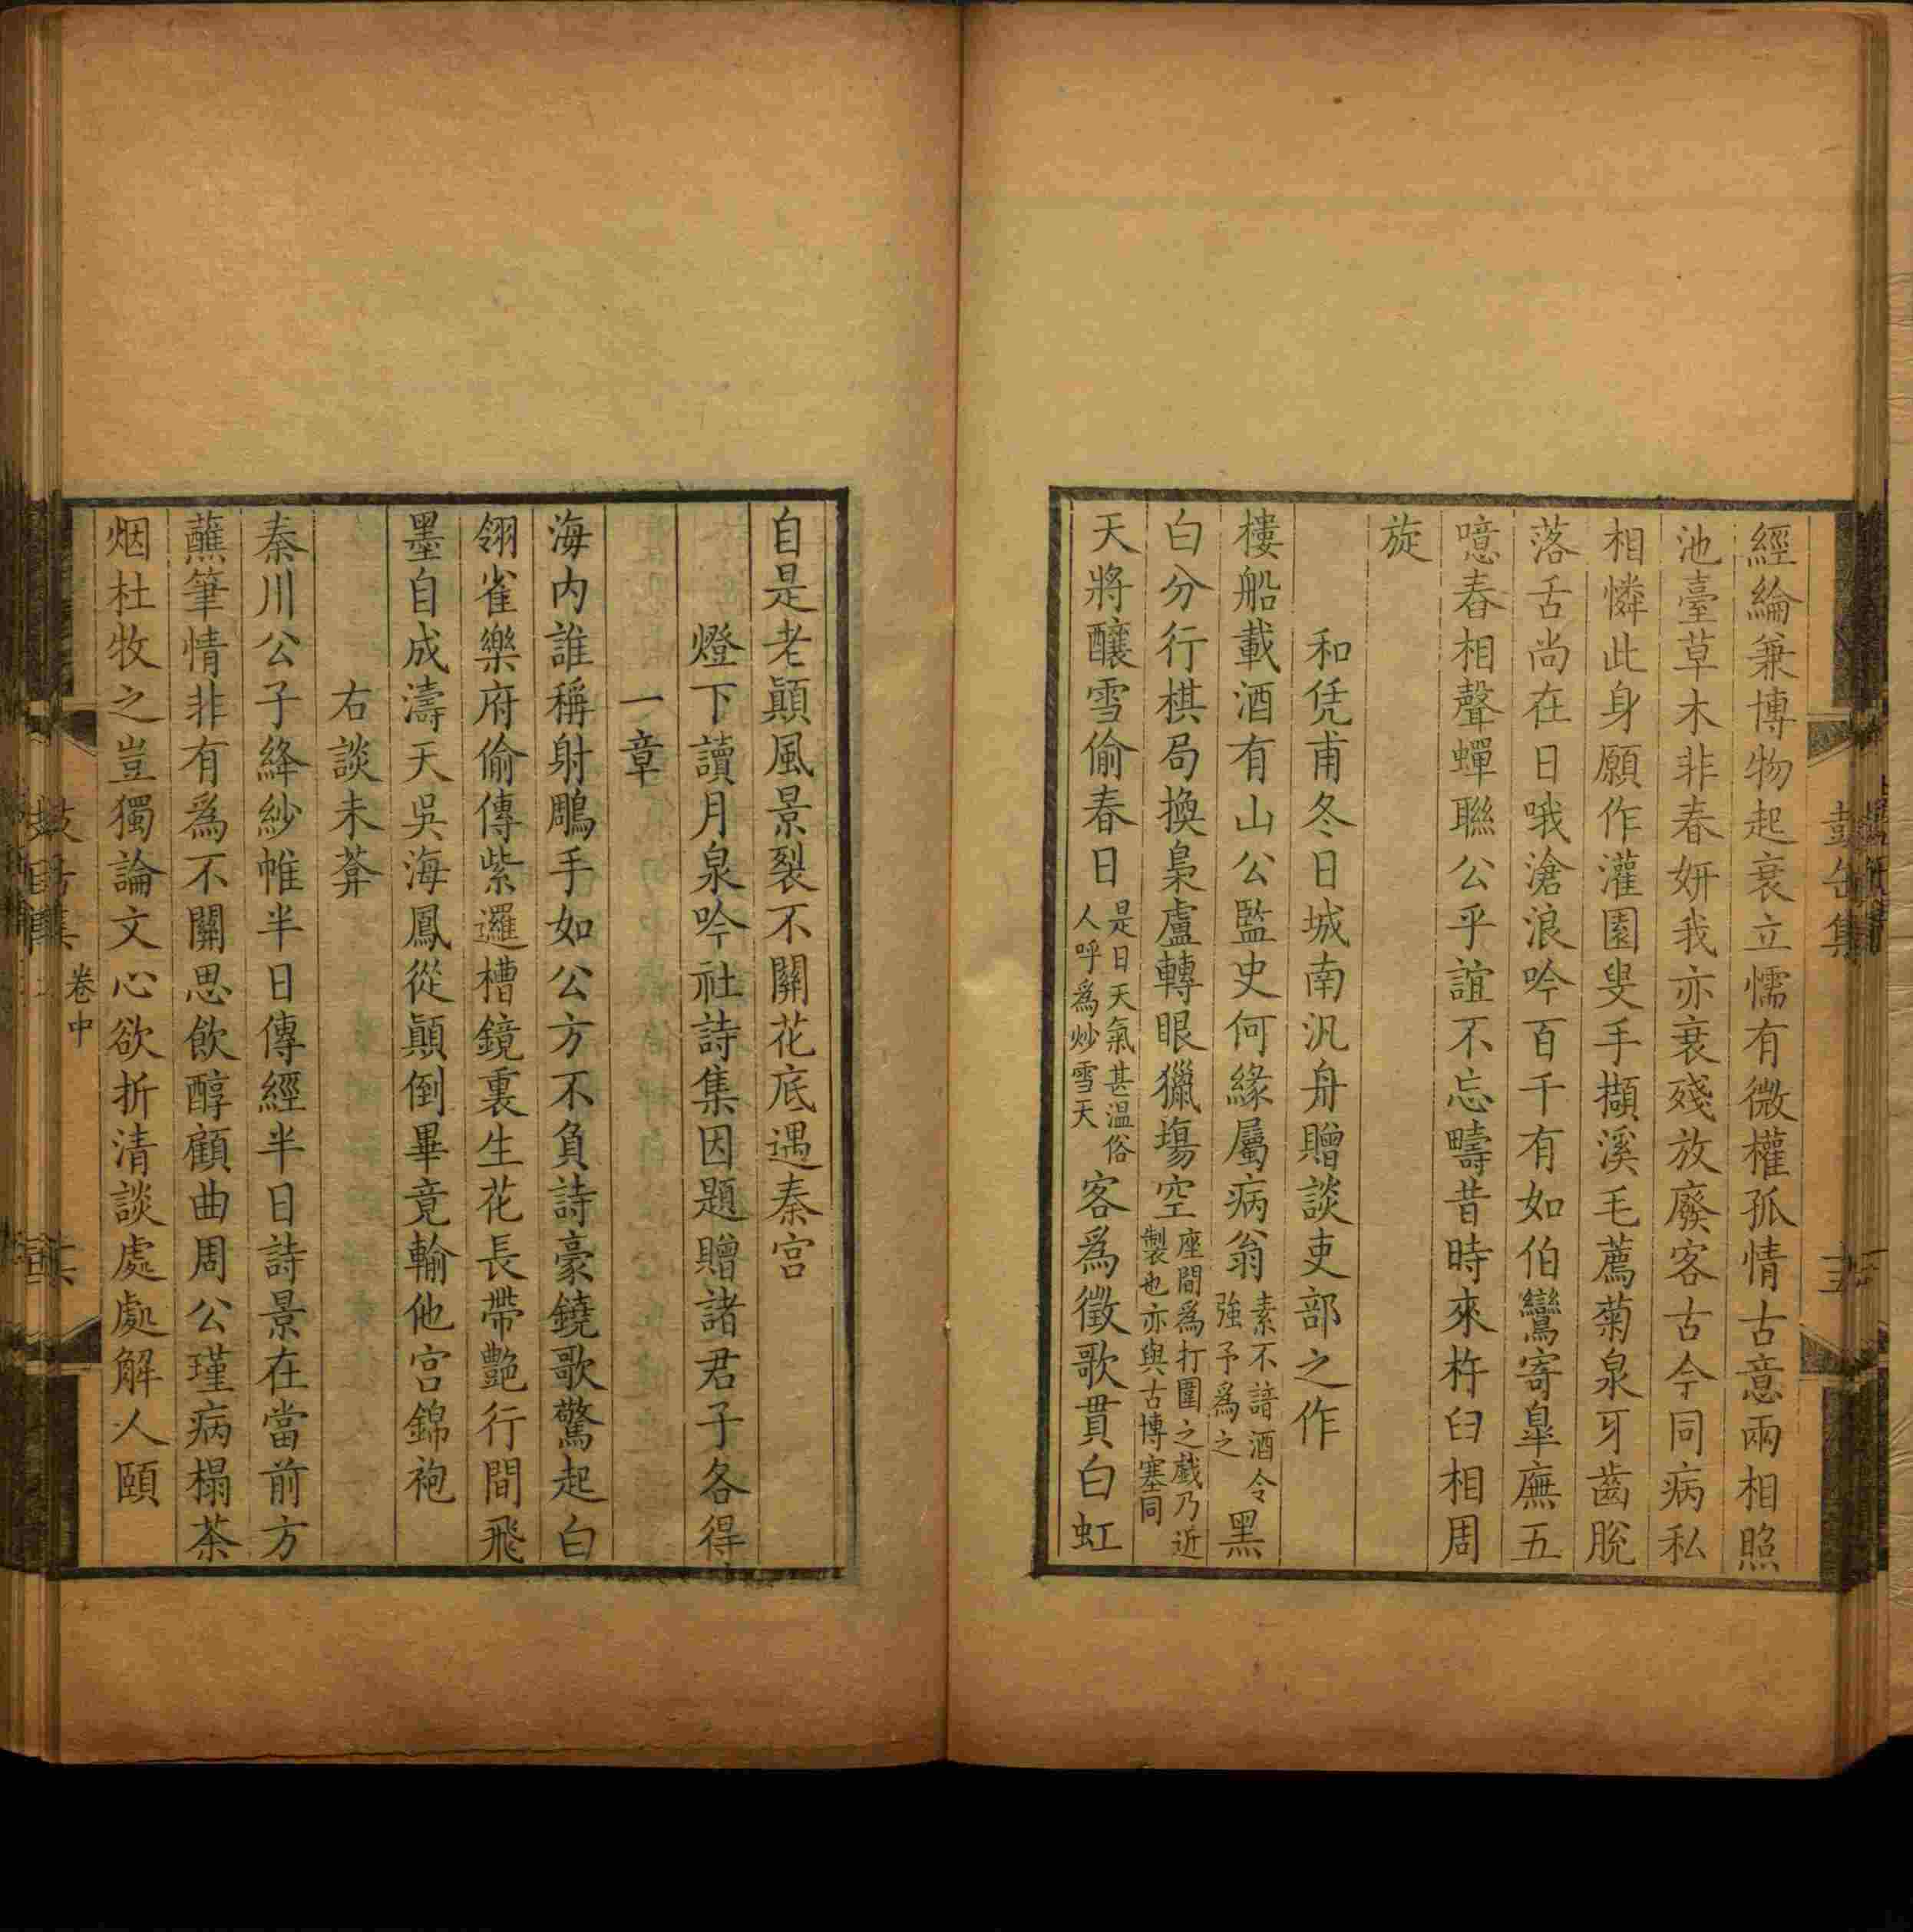 經綸兼博物起衰立懦有微權孤情古意兩相照
池臺草木非春妍我亦衰殘放廢客古今同病私
相憐此身願作灌園叟手擷溪毛薦菊泉牙齒脫
落舌尚在日哦滄浪吟百千有如伯鸞寄皐廡五
噫舂相聲蟬聯公乎誼不忘疇昔時來杵臼相周
旋
和凭甫冬日城南汎舟贈談吏部之作
樓船載酒有山公監史何緣屬病翁素不諳酒令強予爲之黑
白分行棋局換梟盧轉眼獵塲空座間爲打圍之戲乃近製也亦與古博塞同
天將釀雪偷春日是日天氣甚温俗人呼爲炒雪天客爲徵歌貫白虹
鼓缶集
自是老顛風景裂不關花底遇秦宮
燈下讀月泉吟社詩集因題贈諸君子各得
一章
海内誰稱射鵰手如公方不負詩豪鐃歌驚起白
翎雀樂府偷傳紫邏槽鏡裏生花長帶艷行間飛
墨自成濤天吳海鳳從顛倒畢竟輸他宫錦袍
右談未菴
秦川公子絳紗帷半日傳經半日詩景在當前方
蘸筆情非有爲不關思飲醇顧曲周公瑾病榻茶
烟杜牧之豈獨論文心欲折清談處處解人頤
卷中